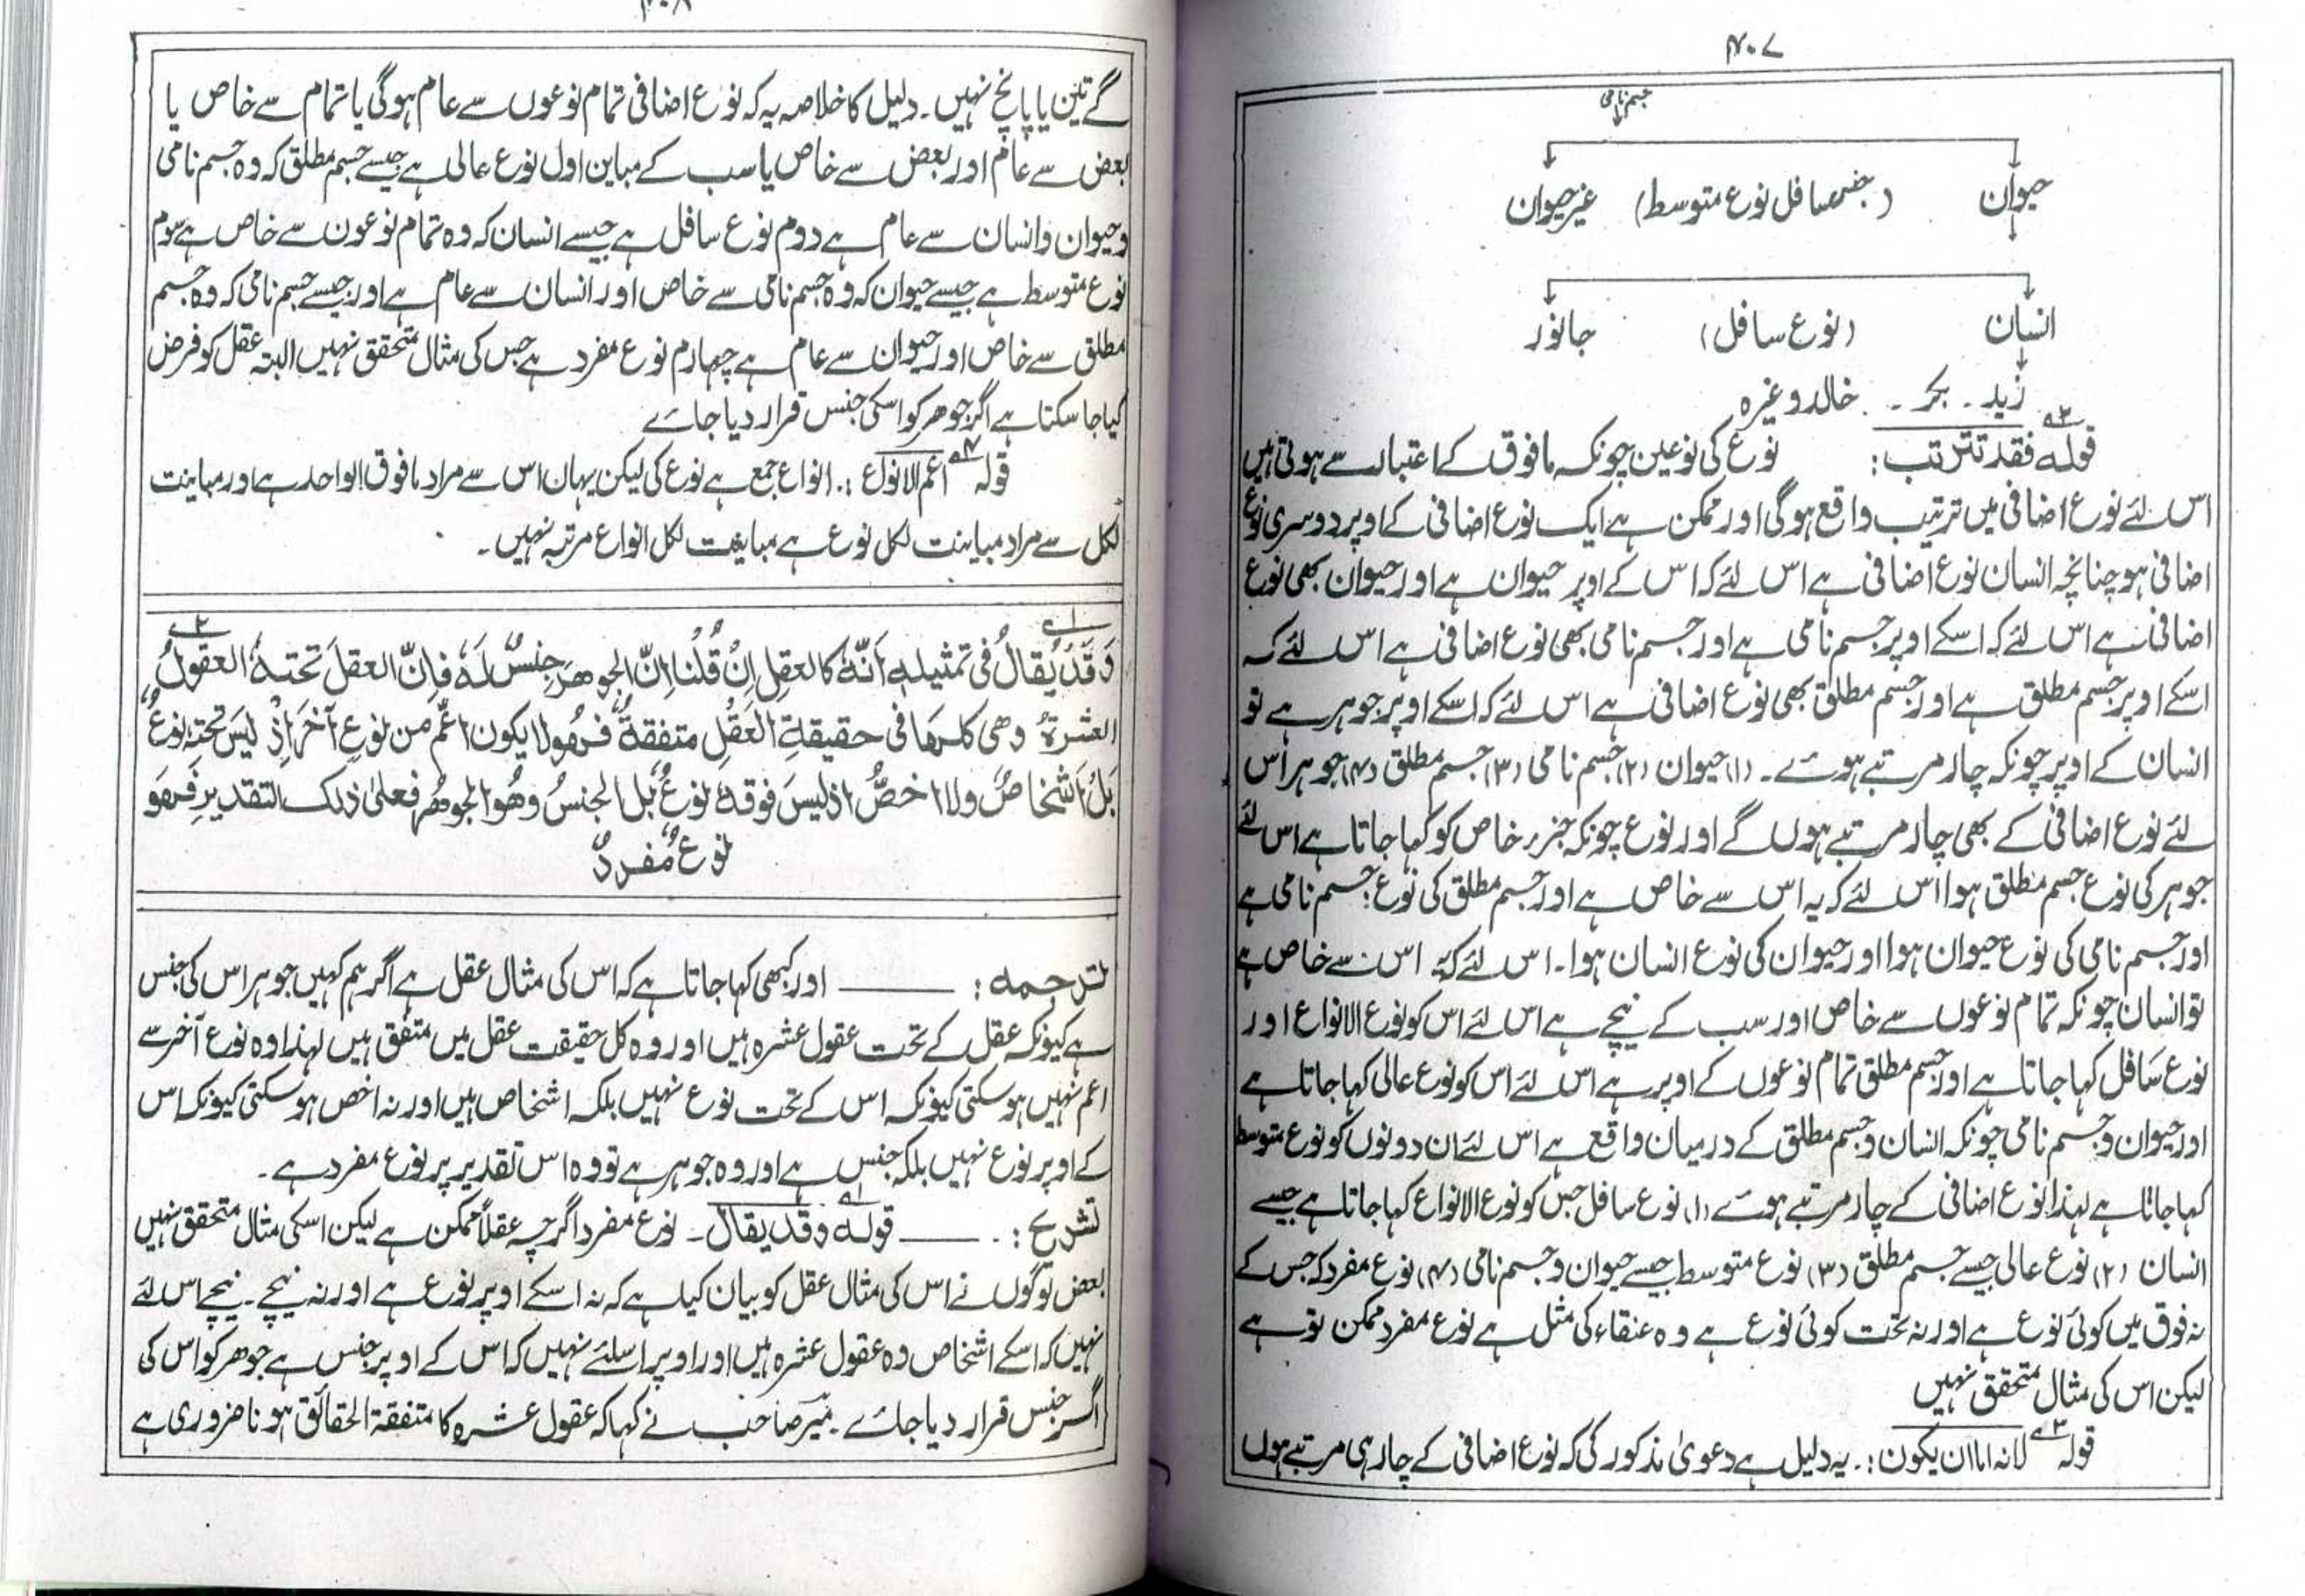 ۴۰۷
جسم نامی
حیوان (جنس سافل نوع متوسط) غیر حیوان
انسان (نوع سافل) جانور
زید ۔ بکر ۔ خالد وغیرہ
قولہ فقد تترتب : نوع کی نوعین چونکہ مافوق کے اعتبار سے ہوتی ہیں
اس لئے نوع اضافی میں ترتیب واقع ہوگی اور ممکن ہے ایک نوع اضافی کے اوپر دوسری نوع
اضافی ہو چنانچہ انسان نوع اضافی ہے اس لئے کہ اس کے اوپر حیوان ہے اور حیوان بھی نوع
اضافی ہے اس لئے کہ اسکے اوپر جسم نامی ہے اور جسم نامی بھی نوع اضافی ہے اس لئے کہ
اسکے اوپر جسم مطلق ہے اور جسم مطلق بھی نوع اضافی ہے اس لئے کہ اسکے اوپر جوہر ہے تو
انسان کے اوپر چونکہ چار مرتبے ہوئے ۔ (۱) حیوان (۲) جسم نامی (۳) جسم مطلق (۴) جوہر اس
لئے نوع اضافی کے بھی چار مرتبے ہوں گے اور نوع چونکہ جزء خاص کو کہا جاتا ہے اس لئے
جوہر کی نوع جسم مطلق ہوا اس لئے کہ یہ اس سے خاص ہے اور جسم مطلق کی نوع جسم نامی ہے
اور جسم نامی کی نوع حیوان ہوا اور حیوان کی نوع انسان ہوا ۔ اس لئے کہ یہ اس سے خاص ہے
تو انسان چونکہ تمام نوعوں سے خاص اور سب کے نیچے ہے اس لئے اس کو نوع الانواع اور
نوع سافل کہا جاتا ہے اور جسم مطلق تمام نوعوں کے اوپر ہے اس لئے اس کو نوع عالی کہا جاتا ہے
اور حیوان و جسم نامی چونکہ انسان و جسم مطلق کے درمیان واقع ہے اس لئے ان دونوں کو نوع متوسط
کہا جاتا ہے لہذا نوع اضافی کے چار مرتبے ہوئے (۱) نوع سافل جس کو نوع الانواع کہا جاتا ہے جیسے
انسان (۲) نوع عالی جیسے جسم مطلق (۳) نوع متوسط جیسے حیوان و جسم نامی (۴) نوع مفرد کہ جس کے
نہ فوق میں کوئی نوع ہے اور نہ تحت کوئی نوع ہے وہ عنقاء کی مثل ہے نوع مفرد ممکن تو ہے
لیکن اس کی مثال متحقق نہیں
قولہ لانہ اما ان یکون : ۔ یہ دلیل ہے دعویٰ مذکور کی کہ نوع اضافی کے چار ہی مرتبے ہوں
۴۰۸
گے تین یا پانچ نہیں ۔ دلیل کا خلاصہ یہ کہ نوع اضافی تمام نوعوں سے عام ہوگی یا تمام سے خاص یا
بعض سے عام اور بعض سے خاص یا سب کے مباین اول نوع عالی ہے جیسے جسم مطلق کہ وہ جسم نامی
و حیوان و انسان سے عام ہے دوم نوع سافل ہے جیسے انسان کہ وہ تمام نوعون سے خاص ہے سوم
نوع متوسط ہے جیسے حیوان کہ وہ جسم نامی سے خاص اور انسان سے عام ہے اور جیسے جسم نامی کہ وہ جسم
مطلق سے خاص اور حیوان سے عام ہے چہارم نوع مفرد ہے جس کی مثال متحقق نہیں البتہ عقل کو فرض
کیا جا سکتا ہے اگر جوھر کو اسکی جنس قرار دیا جائے
قولہ اعم الانواع : ۔ انواع جمع ہے نوع کی لیکن یہان اس سے مراد مافوق الواحد ہے اور مباینت
لکل سے مراد مباینت لکل نوع ہے مباینت لکل انواع مرتبہ نہیں ۔
وَقَدْ یُقَالُ فی تمثیلہٖ اَنَّہٗ کالعقلِ اِنْ قُلْنَا اِنَّ الجوھَرَ جِنسٌ لَہٗ فَاِنَّ العقلَ تحتہٗ العقولُ
العشرۃُ وھی کلہا فی حقیقۃِ العَقْلِ متفقۃٌ فھُو لا یکون اعمَّ من نوعٍ آخَرَ اِذْ لیسَ تحتہٗ نوعٌ
بَلْ اَشْخاصٌ ولا اخصُّ اذ لیسَ فوقہٗ نوعٌ بَل الجنسُ وھُو الجوھر فعلیٰ ذلک التقدیرِ فھو
نوعٌ مُفردٌ
ترجمہ : ــــــ اور کبھی کہا جاتا ہے کہ اس کی مثال عقل ہے اگر ہم کہیں جوہر اس کی جنس
ہے کیونکہ عقل کے تحت عقول عشرہ ہیں اور وہ کل حقیقت عقل میں متفق ہیں لہذا وہ نوع آخر سے
اعم نہیں ہو سکتی کیونکہ اس کے تحت نوع نہیں بلکہ اشخاص ہیں اور نہ اخص ہو سکتی کیونکہ اس
کے اوپر نوع نہیں بلکہ جنس ہے اور وہ جوہر ہے تو وہ اس تقدیر پر نوع مفرد ہے ۔
تشریح : ۔ ــــــ قولہ وقد یقال ۔ نوع مفرد اگر چہ عقلاً ممکن ہے لیکن اسکی مثال متحقق نہیں
بعض لوگوں نے اس کی مثال عقل کو بیان کیا ہے کہ نہ اسکے اوپر نوع ہے اور نہ نیچے ۔ نیچے اس لئے
نہیں کہ اسکے اشخاص وہ عقول عشرہ ہیں اور اوپر اسلئے نہیں کہ اس کے اوپر جنس ہے جوھر کو اس کی
اگر جنس قرار دیا جائے ۔ میر صاحب نے کہا کہ عقول عشرہ کا متفقۃ الحقائق ہونا ضروری ہے